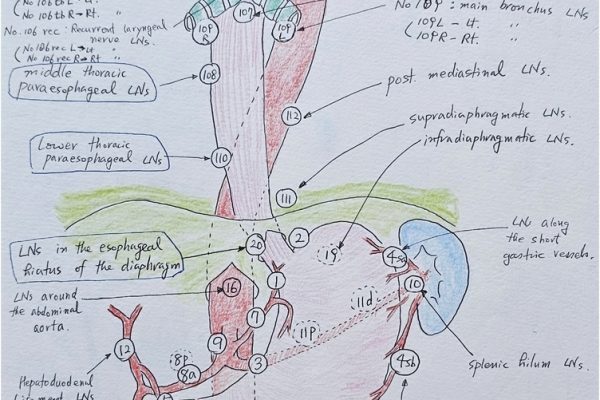 No 106tb L : Lt. "
No 106tb R → Rt. "
No. 106 rec : Recurrent laryngeal
nerve LNs.
(No 106 rec L → Lt "
(No 106 rec R → Rt. "
middle thoracic
paraesophageal LNs
Lower thoracic
paraesophageal LNs
LNs in the esophageal
hiatus of the diaphragm
LNs around
the abdominal
aorta.
Hepatoduodenal
107
109
R
109
L
No 109 : main bronchus LNs
(109L - Lt. "
(109R - Rt. "
108
post. mediastinal LNs.
112
supradiaphragmatic LNs.
infradiaphragmatic LNs.
110
111
LNs along
the short
gastric vessels.
20
2
19
4sa
10
16
1
11d
7
11p
9
12
8p
8a
3
4sb
splenic hilum LNs.